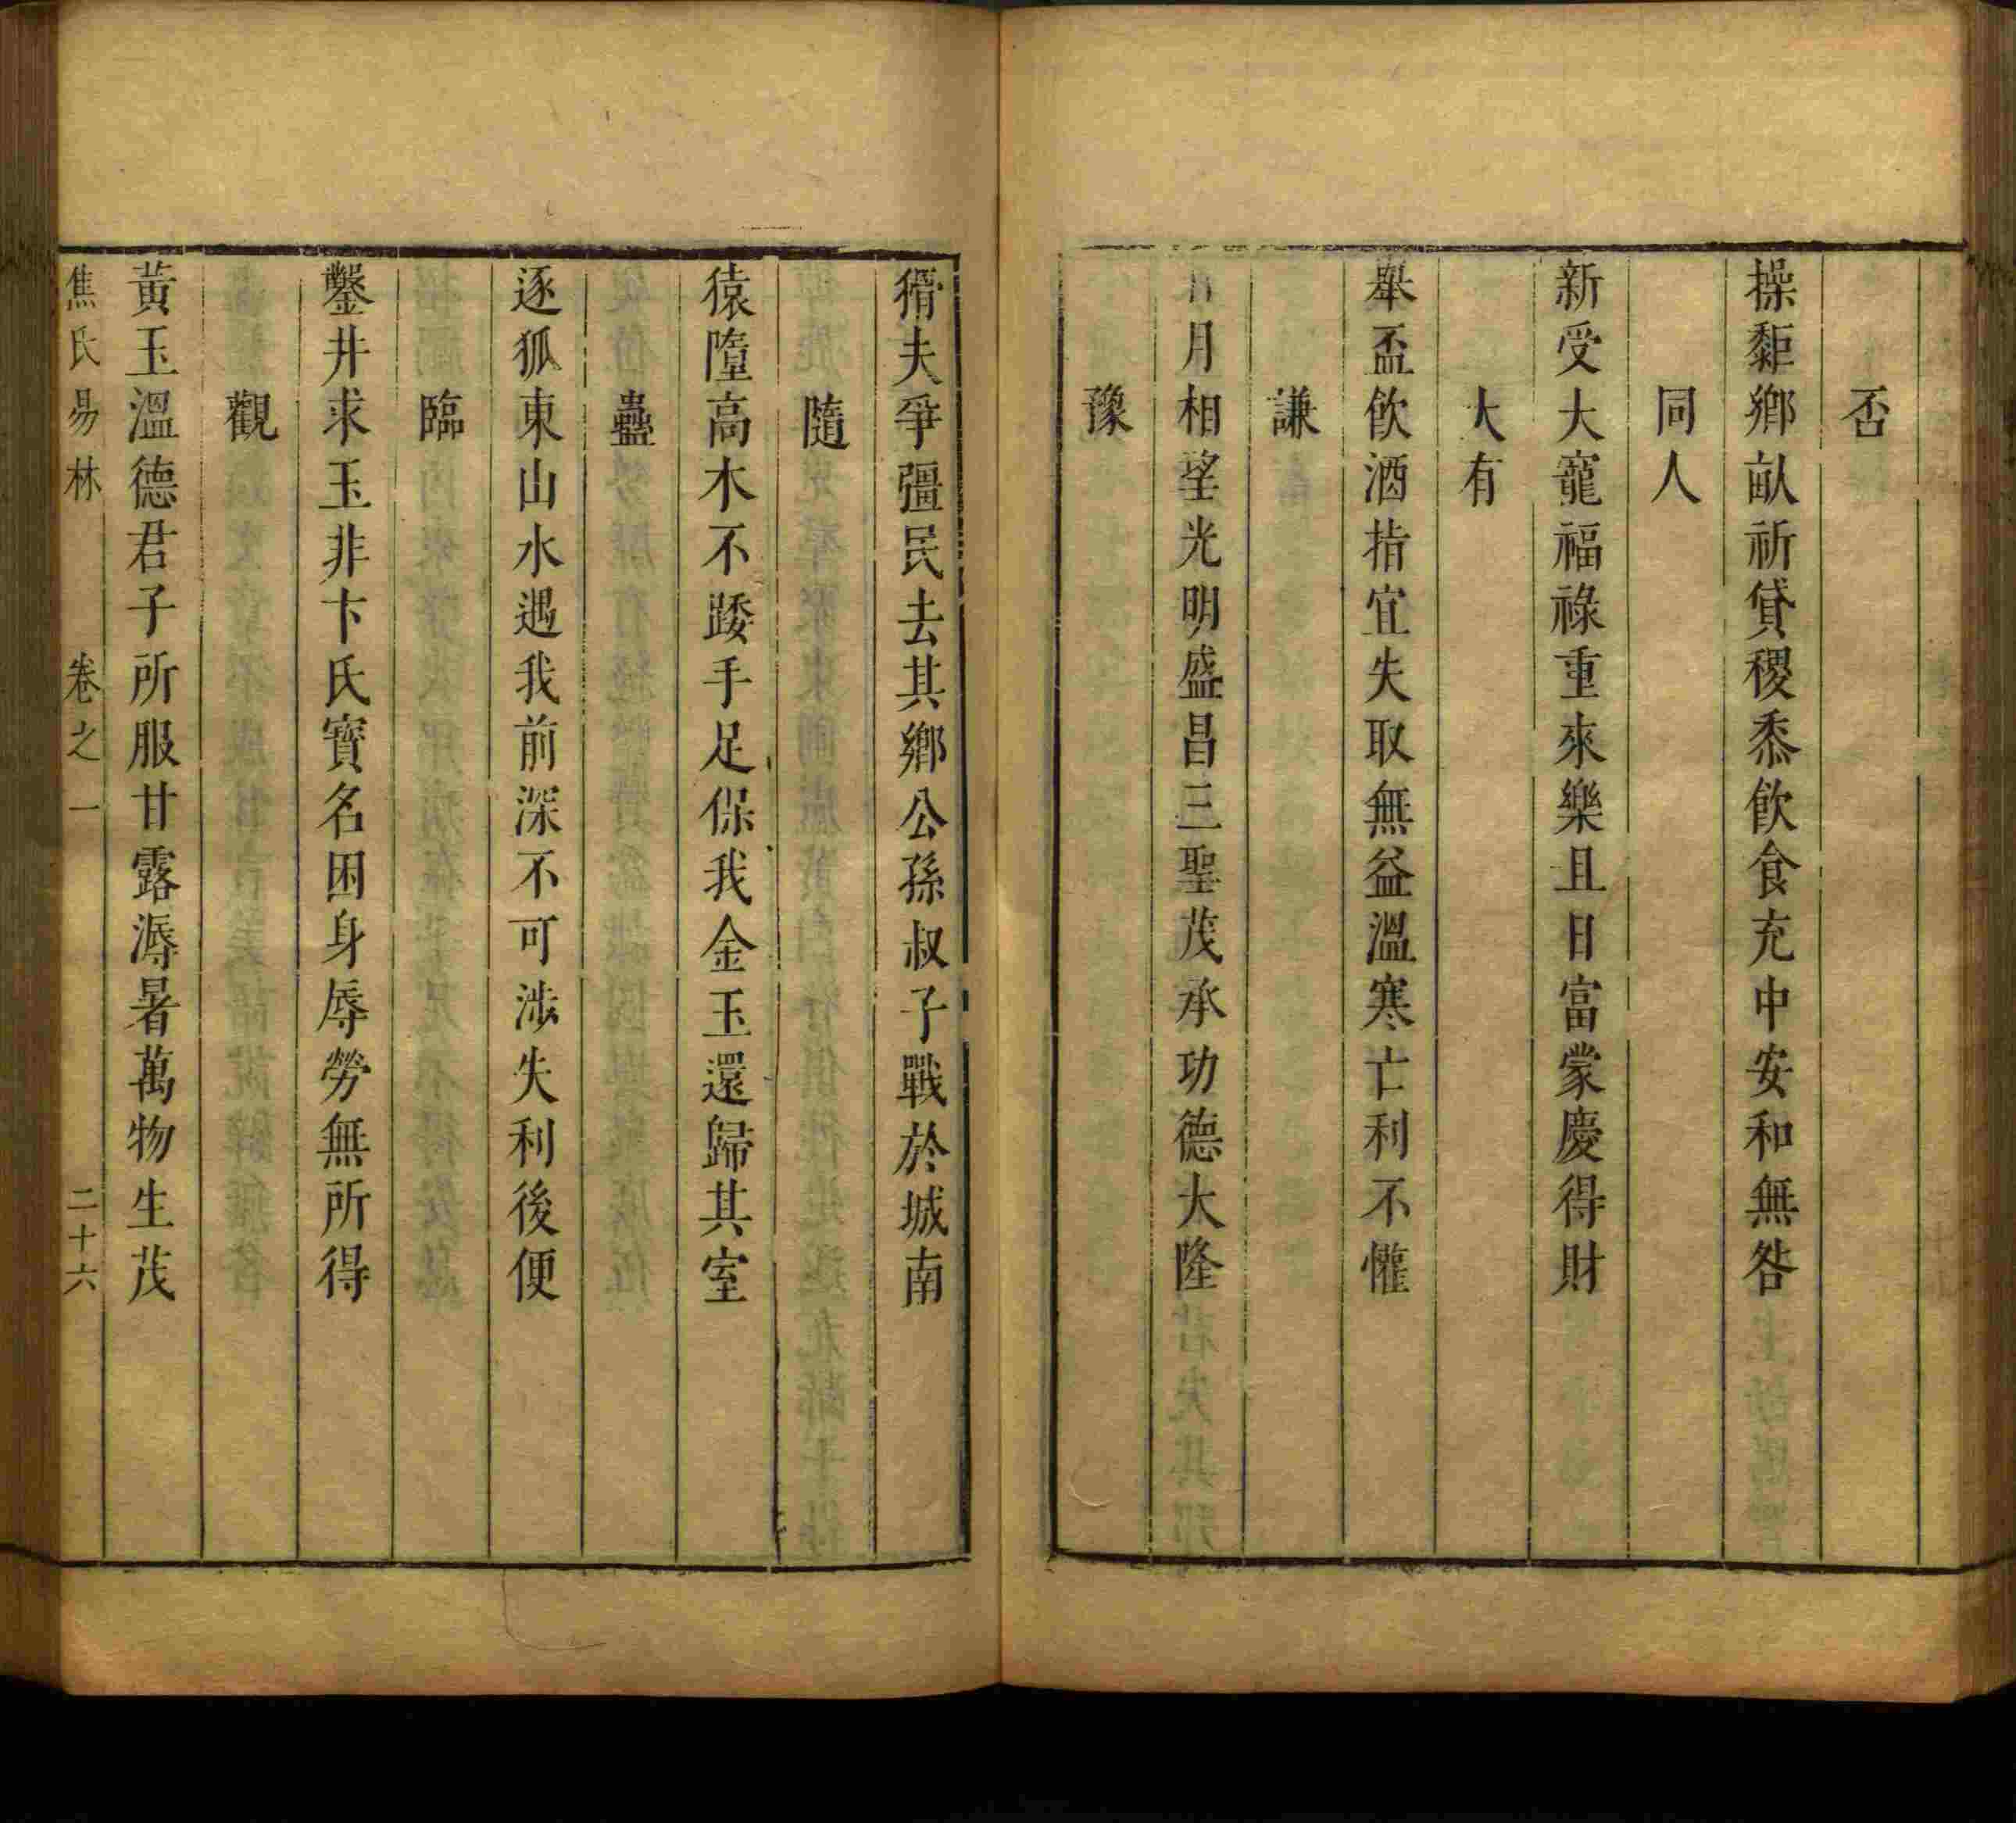 否
操䵒鄉畝祈貸稷黍飲食充中安和無咎
同人
新受大寵福祿重來樂且日富蒙慶得財
大有
舉盃飲酒指宜失取無益溫寒亡利不懽
謙
日月相望光明盛昌三聖茂承功德大隆
豫
猾夫爭彊民去其鄉公孫叔子戰於城南
隨
猿墮高木不踒手足保我金玉還歸其室
蠱
逐狐東山水遏我前深不可涉失利後便
臨
鑿井求玉非卞氏寶名困身辱勞無所得
觀
黃玉溫德君子所服甘露溽暑萬物生茂
焦氏易林 卷之一 二十六